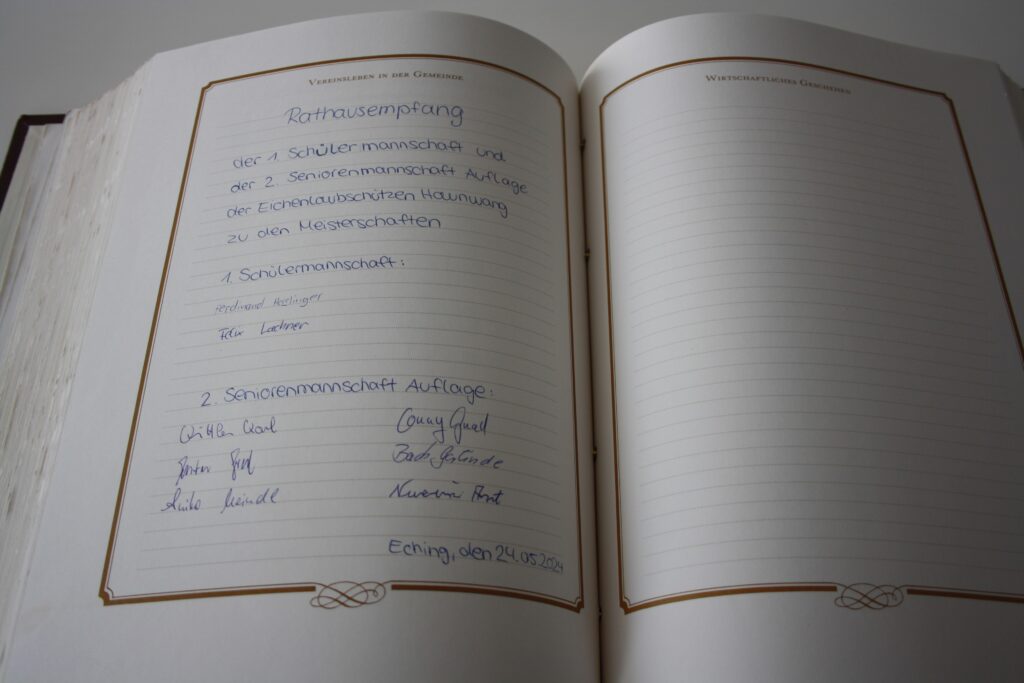 Vereinsleben in der Gemeinde
Rathausempfang
der 1. Schülermannschaft und
der 2. Seniorenmannschaft Auflage
der Eichenlaubschützen Haunwang
zu den Meisterschaften
1. Schülermannschaft:
Ferdinand
Felix Lachner
2. Seniorenmannschaft Auflage:
Karl
Conny
Meindl
Eching, den 24.05.2024
Wirtschaftliches Geschehen